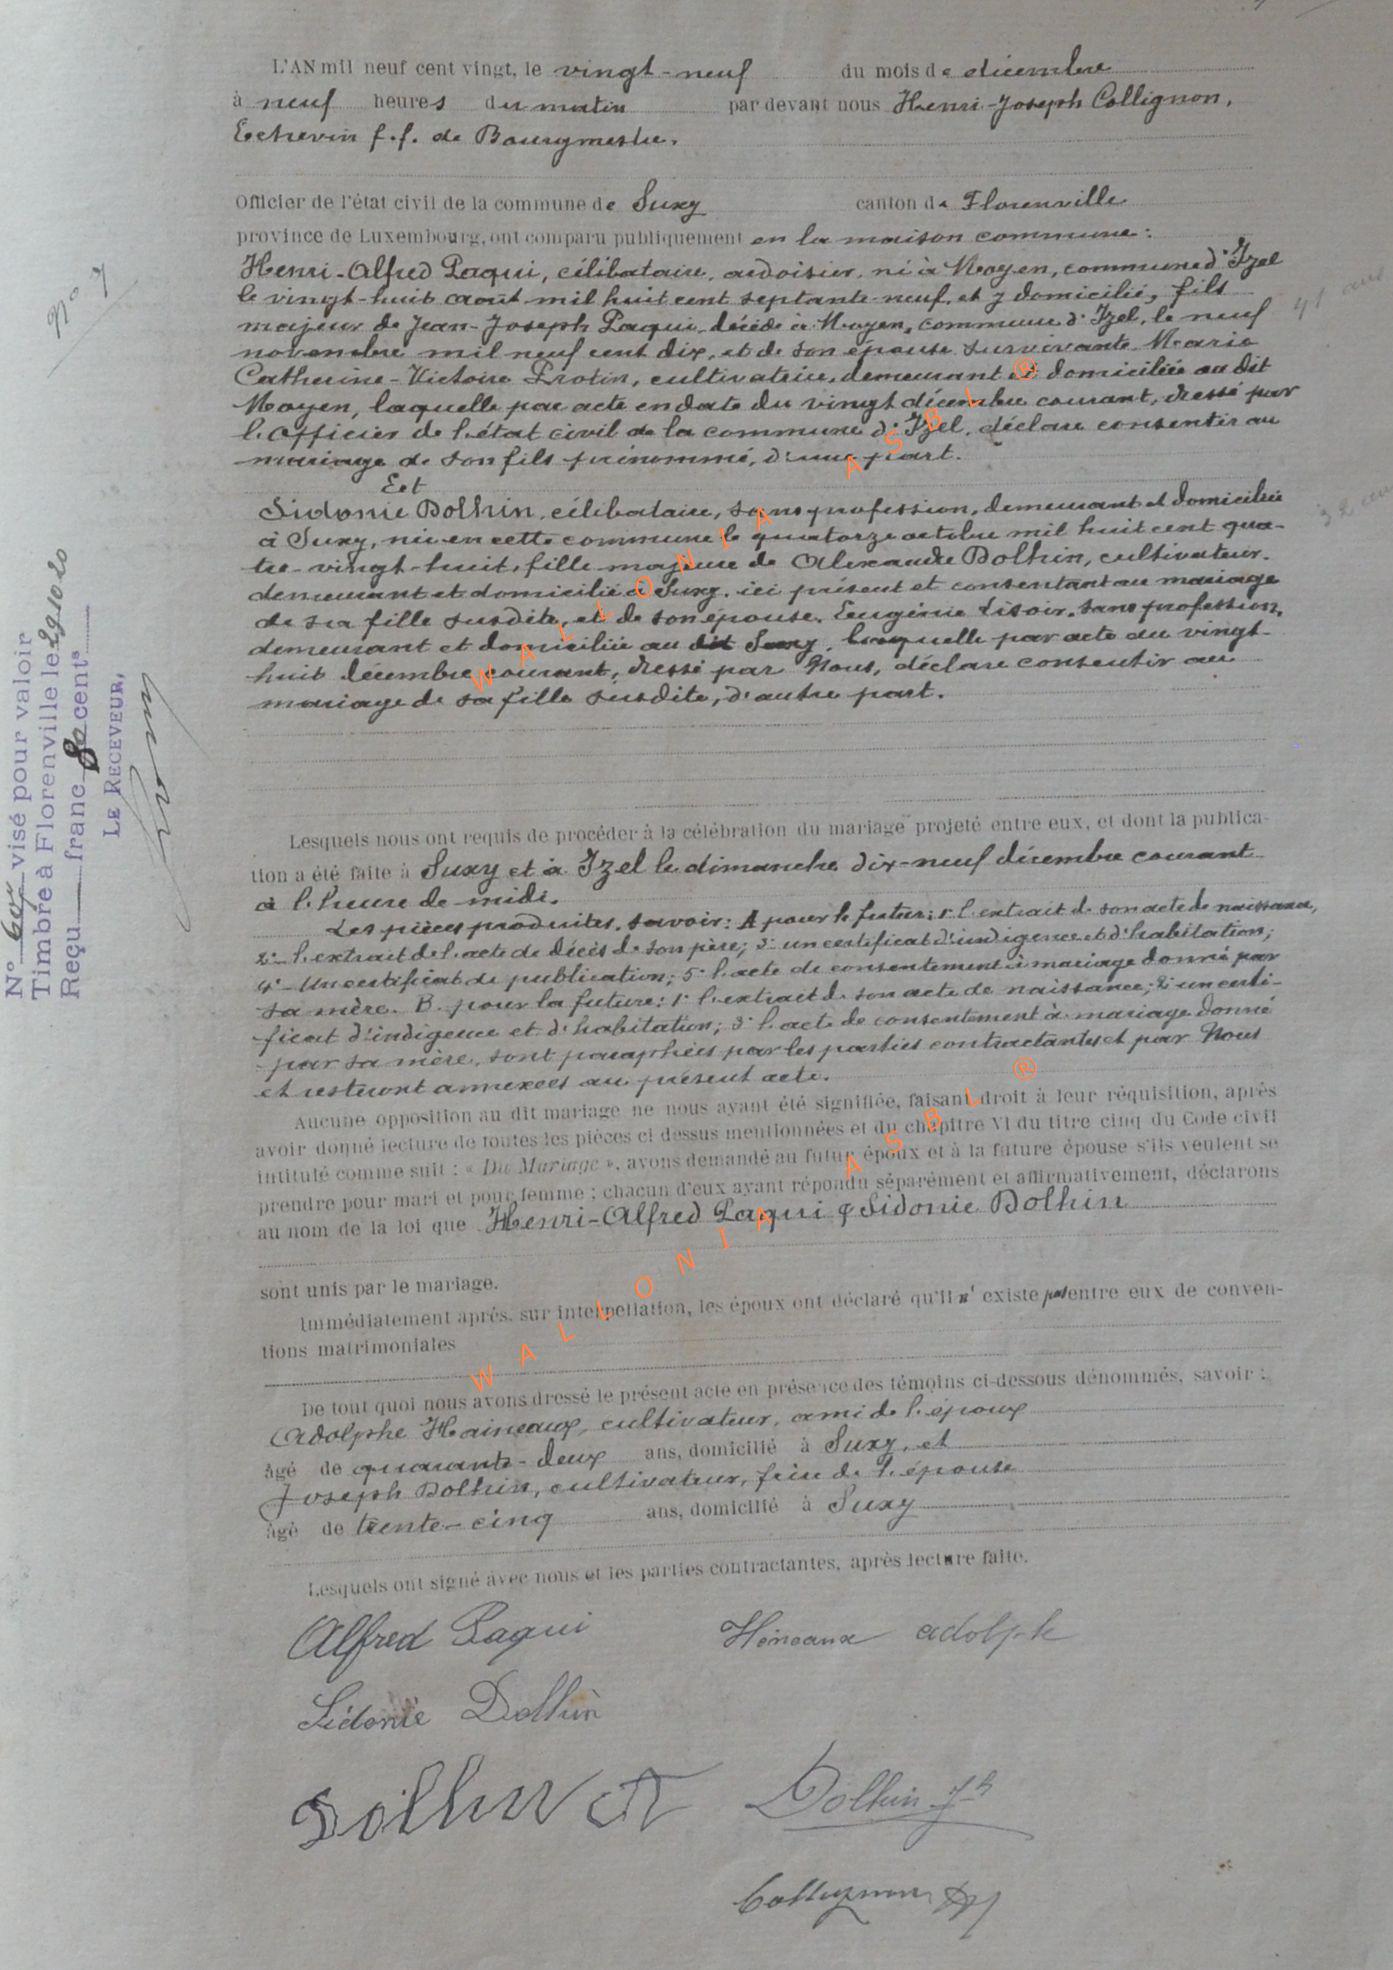 L'AN mil neuf cent vingt, le vingt-neuf du mois de décembre
à neuf heures du matin par devant nous Henri-Joseph Collignon,
Echevin f.f. de Bourgmestre.
Officier de l'état civil de la commune de Suxy canton de Florenville
province de Luxembourg, ont comparu publiquement en la maison commune:
Henri-Alfred Paqui, célibataire, ardoisier, né à Moyen, commune d'Izel
le vingt-huit août mil huit cent septante-neuf, et y domicilié, fils
majeur de Jean-Joseph Paqui, décédé à Moyen, commune d'Izel, le neuf
novembre mil neuf cent dix, et de son épouse survivante Marie
Catherine-Victoire Protin, cultivatrice, demeurant et domiciliée au dit
Moyen, laquelle par acte en date du vingt décembre courant, dressé par
l'officier de l'état civil de la commune d'Izel, déclare consentir au
mariage de son fils prénommé, d'une part.
Et
Sidonie Dolhin, célibataire, sans profession, demeurant et domiciliée
à Suxy, née en cette commune le quatorze octobre mil huit cent qua-
tre-vingt-huit, fille majeure de Alexandre Dolhin, cultivateur,
demeurant et domicilié à Suxy, ici présent et consentant au mariage
de sa fille susdite, et de son épouse, Eugénie Lisoir, sans profession,
demeurant et domiciliée au dit Suxy, laquelle par acte du vingt-
huit décembre courant, dressé par Nous, déclare consentir au
mariage de sa fille susdite, d'autre part.
Lesquels nous ont requis de procéder à la célébration du mariage projeté entre eux, et dont la publica-
tion a été faite à Suxy et à Izel le dimanche dix-neuf décembre courant
à l'heure de midi.
Les pièces produites, savoir: A pour le futur: 1° l'extrait de son acte de naissance,
2° l'extrait de l'acte de décès de son père; 3° un certificat d'indigence et d'habitation;
4° Un certificat de publication; 5° l'acte de consentement à mariage donné par
sa mère. B. pour la future: 1° l'extrait de son acte de naissance; 2° un certi-
ficat d'indigence et d'habitation; 3° l'acte de consentement à mariage donné
par sa mère, sont paraphées par les parties contractantes et par Nous
et resteront annexées au présent acte.
Aucune opposition au dit mariage ne nous ayant été signifiée, faisant droit à leur réquisition, après
avoir donné lecture de toutes les pièces ci dessus mentionnées et du chapitre VI du titre cinq du Code civil
intitulé comme suit : « Du Mariage », avons demandé au futur époux et à la future épouse s'ils veulent se
prendre pour mari et pour femme ; chacun d'eux ayant répondu séparément et affirmativement, déclarons
au nom de la loi que Henri-Alfred Paqui & Sidonie Dolhin
sont unis par le mariage.
Immédiatement après, sur interpellation, les époux ont déclaré qu'il n'existe pas entre eux de conven-
tions matrimoniales
De tout quoi nous avons dressé le présent acte en présence des témoins ci-dessous dénommés, savoir :
Adolphe Haineaux, cultivateur, ami de l'époux
âgé de quarante-deux ans, domicilié à Suxy, et
Joseph Dolhin, cultivateur, frère de l'épouse
âgé de trente-cinq ans, domicilié à Suxy
Lesquels ont signé avec nous et les parties contractantes, après lecture faite.
Alfred Paqui Héneaux adolphe
Sidonie Dolhin
Dolhin A Dolhin Jh
Collignon HJ
N° 7
41 ans
32 ans
N° 607 visé pour valoir
Timbre à Florenville le 29.10.20
Reçu franc 80 cent^s
LE RECEVEUR,
WALLONIA ASBL ®
WALLONIA ASBL ®